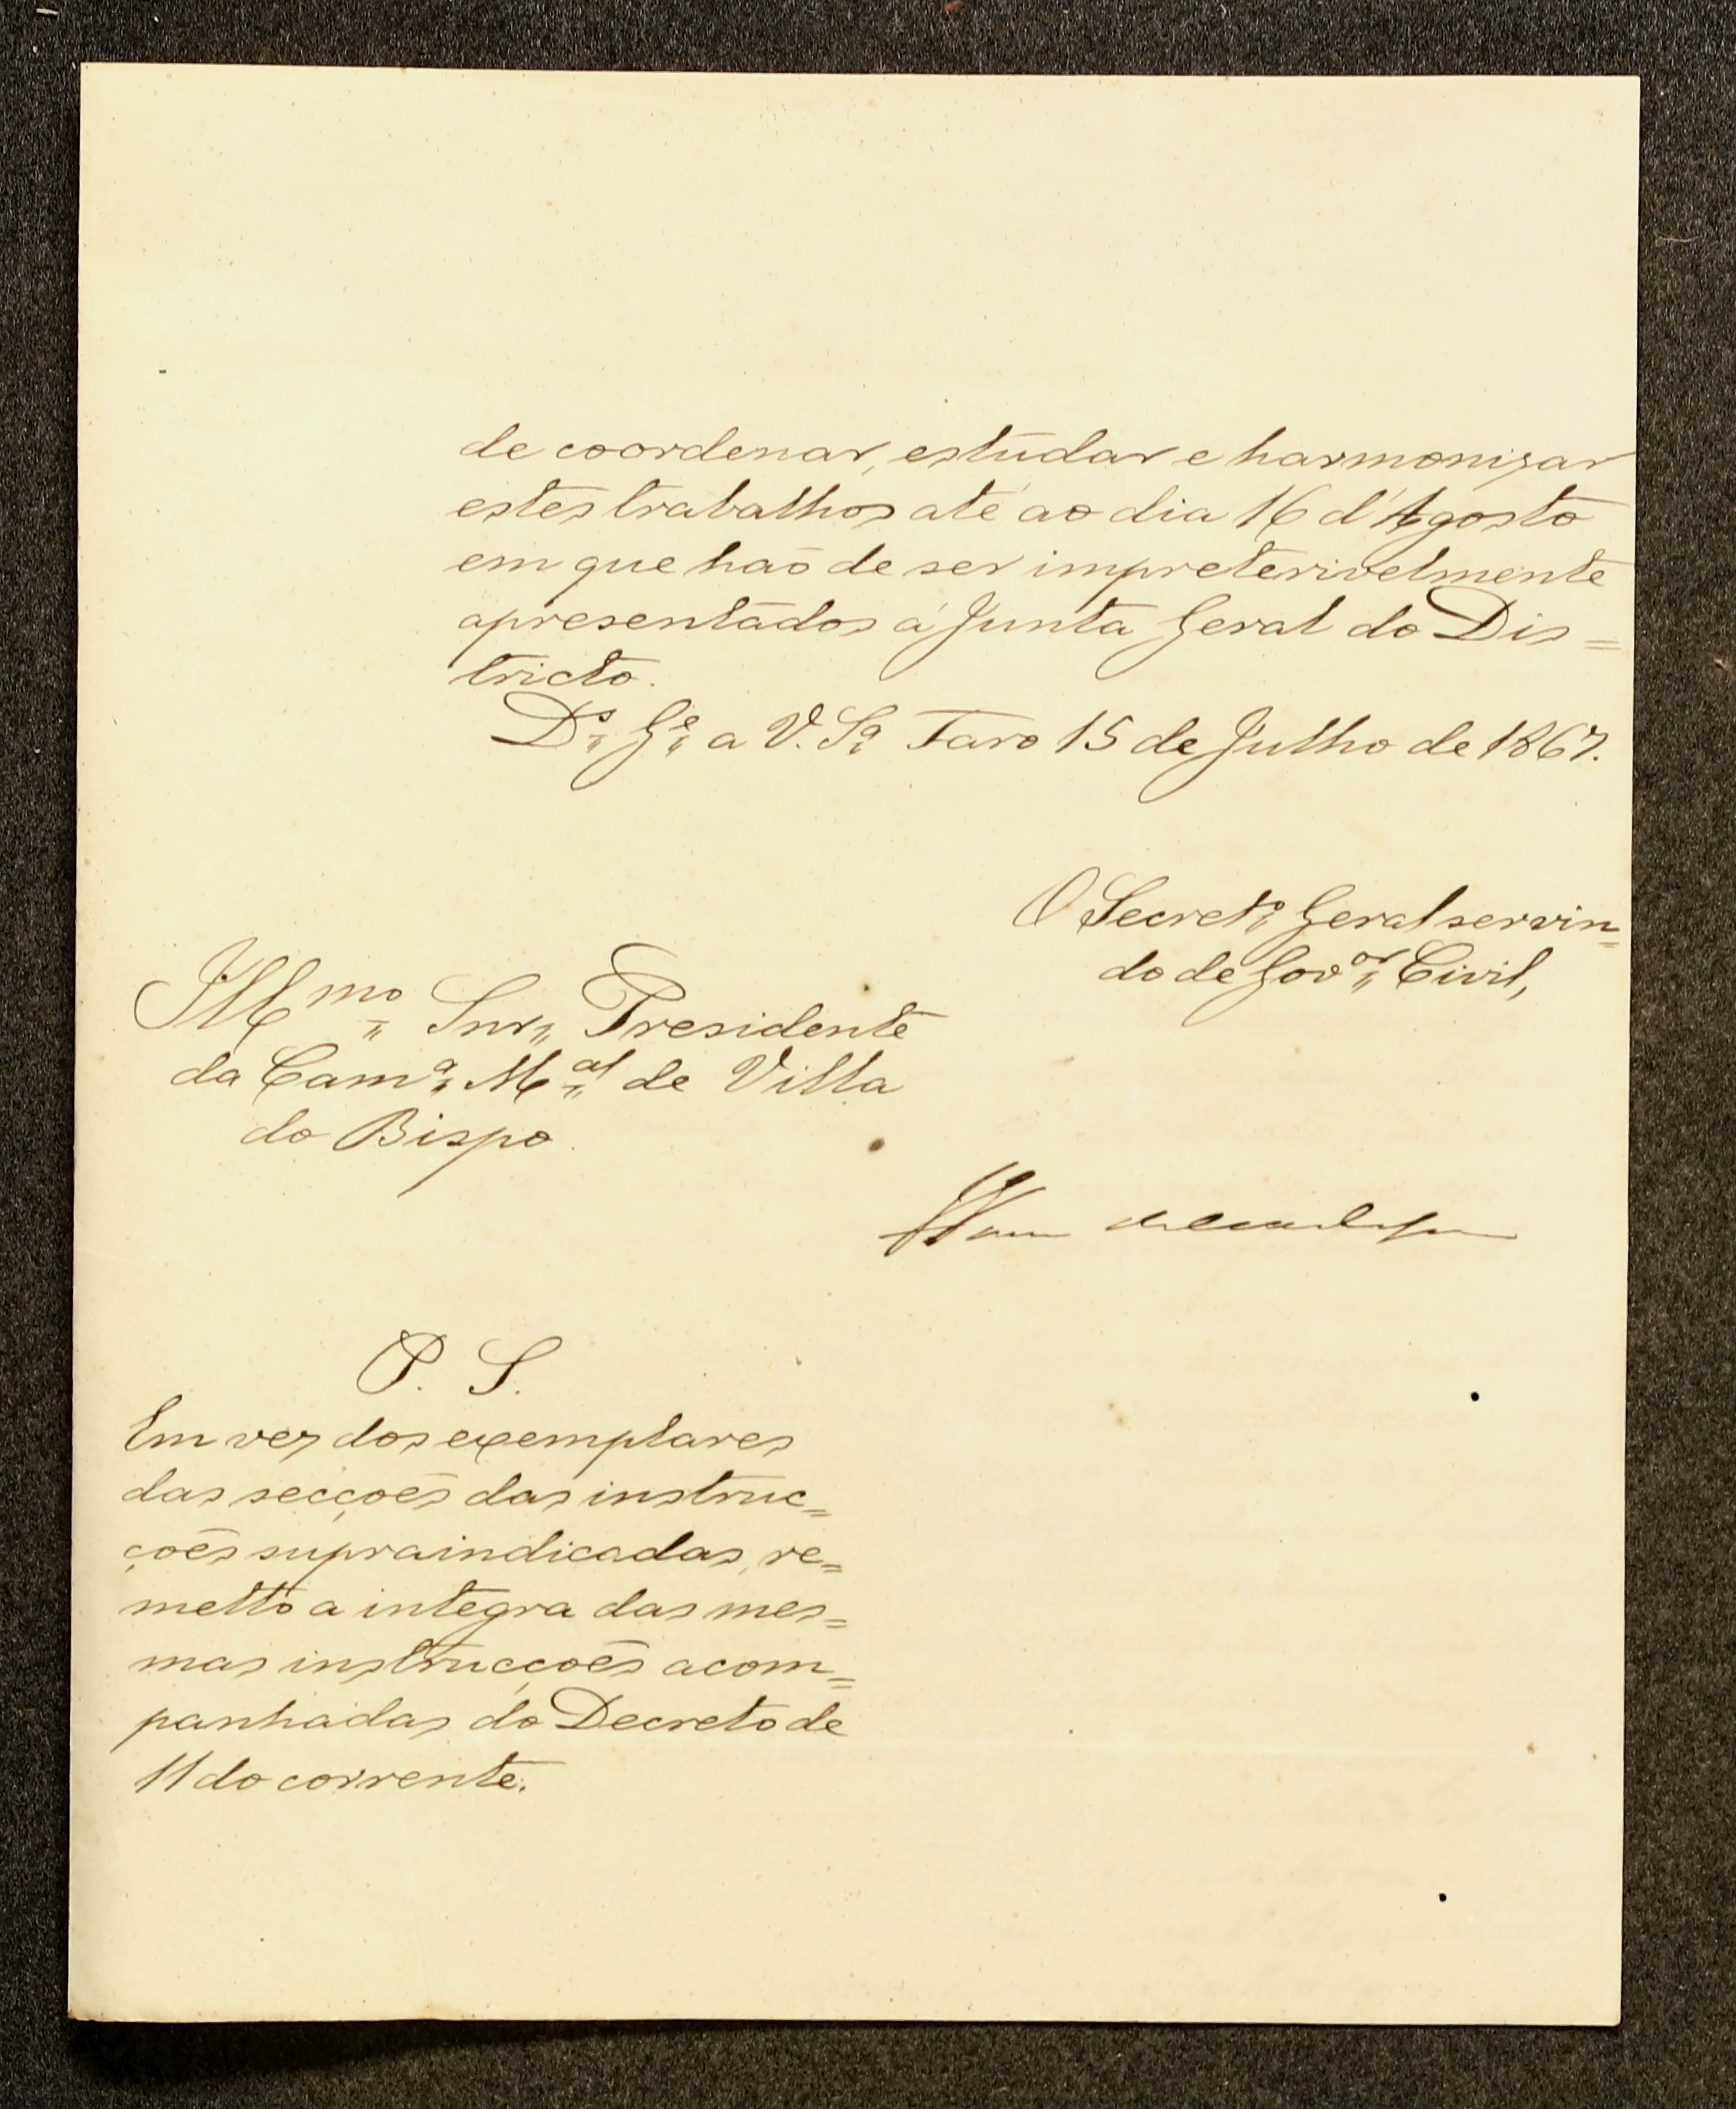 de coordenar, estudar e harmonizar
estes trabalhos até ao dia 16 d'Agosto
em que hão de ser impreterivelmente
apresentados á Junta Geral do Dis=
tricto.
Ds. Ge. a V. Sa. Faro 15 de Julho de 1867.
O Secreto. Geral servin=
do de Govor. Civil,
Illmo. Snr. Presidente
da Cama. Mal. de Villa
do Bispo.
P. S.
Em vez dos exemplares
das secções das instruc=
ções supraindicadas, re=
metto a integra das mes=
mas instrucções acom=
panhadas do Decreto de
11 do corrente.